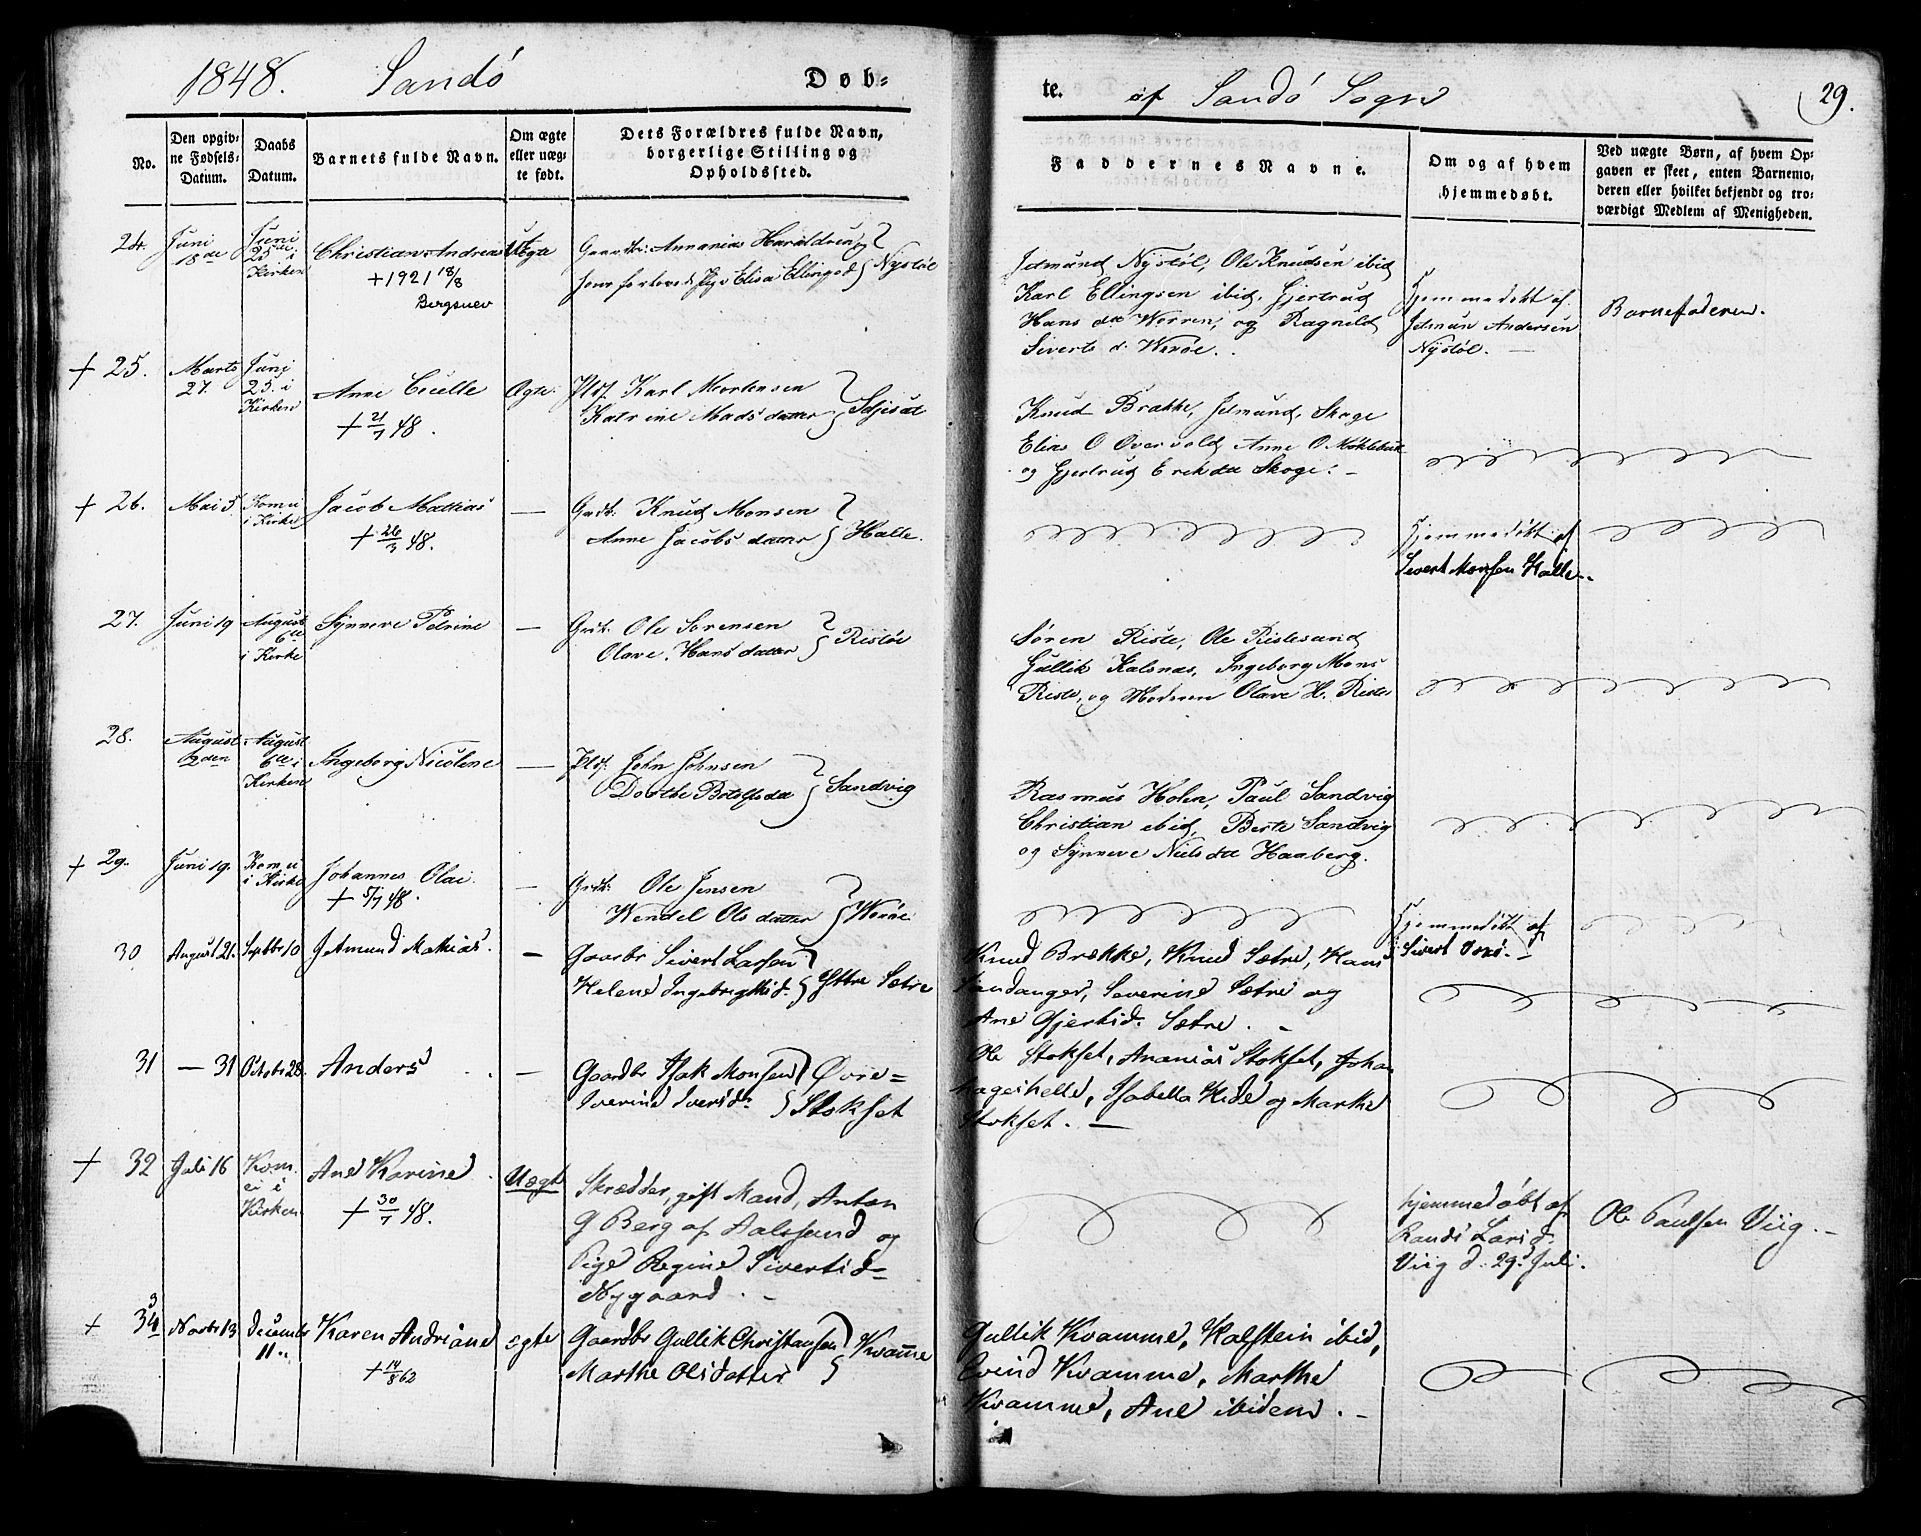 1848. Sandö Døb=
te. af Sandö Sogn 29.
No.
Den opgiv-
ne Fødsels-
Datum.
Daabs
Datum.
Barnets fulde Navn.
Om ægte
eller uæg-
te født.
Dets Forældres fulde Navn,
borgerlige Stilling og
Opholdssted.
Faddernes Navne.
Om og af hvem
hjemmedøbt.
Ved uægte Børn, af hvem Op-
gaven er skeet, enten Barnemo-
deren eller hvilket bekjendt og tro-
værdigt Medlem af Menigheden.
24.
Juni
18de
Juni
25de i
Kirken
Christian Andreas
+ 1921 18/8
Bergsnev
Uægte
Ananias Haraldsen
Elisa Ellingsd
Nystøl
Jetmund Nystøl, Ole Knudsen ibid
Karl Ellingsen ibid, Gjertrud
Hans da Worren, og Ragnild
Siverts d. Worøe.
Hjemmedøbt af
Jetmun Andersen
Nystøl.
Barnefaderen.
+ 25.
Marts
27.
Juni
25. i
Kirken
Anne Cecilie
+ 21/7 48.
Ægte
Plds. Karl Mortensen
Katrine Madsdatter
Knud Brække, Jetmund Skoge
Elias O Overvold, Anne O Møklebust
og Gjertrud Erikda Skoge. –
+ 26.
Mai 5
Kom ei
i Kirke
Jacob Mattias
+ 26/3 48.
—
Grdb. Knud Monsen
Anne Jacobsdatter
Halle.
Hjemmedøbt af
Sivert Monsen Halle.
27.
Juni 19
August
6te
i Kirke
Synneve Petrine
—
Grdb. Ole Sørensen
Olave Hansdatter
Ristøe
Søren Riste, Ole Ristesund
Gullik Kalsnæs, Ingeborg Mons
Riste, og Moderen Olave H. Riste
28.
August
2den
August
6te i
Kirken
Ingeborg Nicoline
—
Plds. John Johnsen
Dorthe Botolfsda
Sandvig
Rasmus Holen, Paul Sandvig
Christian ibid, Berte Sandvig
og Synneve Nielsda Haaberg.
+ 29.
Juni 19.
Kom ei
i Kirke
Johannes Olai.
+ 5/7 48.
—
Grdb. Ole Jensen
Wendel Olsdatter
Worøe
Hjemmedøbt af
Sivert Vorö. –
30
August 21.
Septbr 10
Jetmund Mathias.
—
Gaardbr Sivert Larsen
Helene Ingebrigtsd.
Yttre Sætre
Knud Brække, Knud Sætre, Hans
Sandanger, Severine Sætre og
Ane Gjertsd. Sætre. –
31
— 31
October 28.
Anders
—
Gaardbr Isak Monsen
Iverine Iversdr
Øvre=
Stokset
Ole Stokset, Ananias Stokset, Johan
Hageshelle, Isabella Hide og Marthe
Stokset. —
+ 32
Juli 16
Kom
ei i
Kirken
Ane Karine
+ 30/7 48.
Uægte
Skrædder, gift Mand, Anton
G Berg af Aalesund og
Pige Regine Sivertsd=
Nygaard. –
hjemmedøbt af
Randi Larsd.
Viig d. 29d Juli.
Ole Paulsen Viig. –
+ 34
Novbr 13
Decembr
11..
Karen Andriane
+ 14/8 62
ægte
Gaardbr Gullik Christiansen
Marthe Olsdatter
Kvamme
Gullik Kvamme, Halstein ibid,
Evind Kvamme, Marthe
Kvamme, Ane ibidem. –